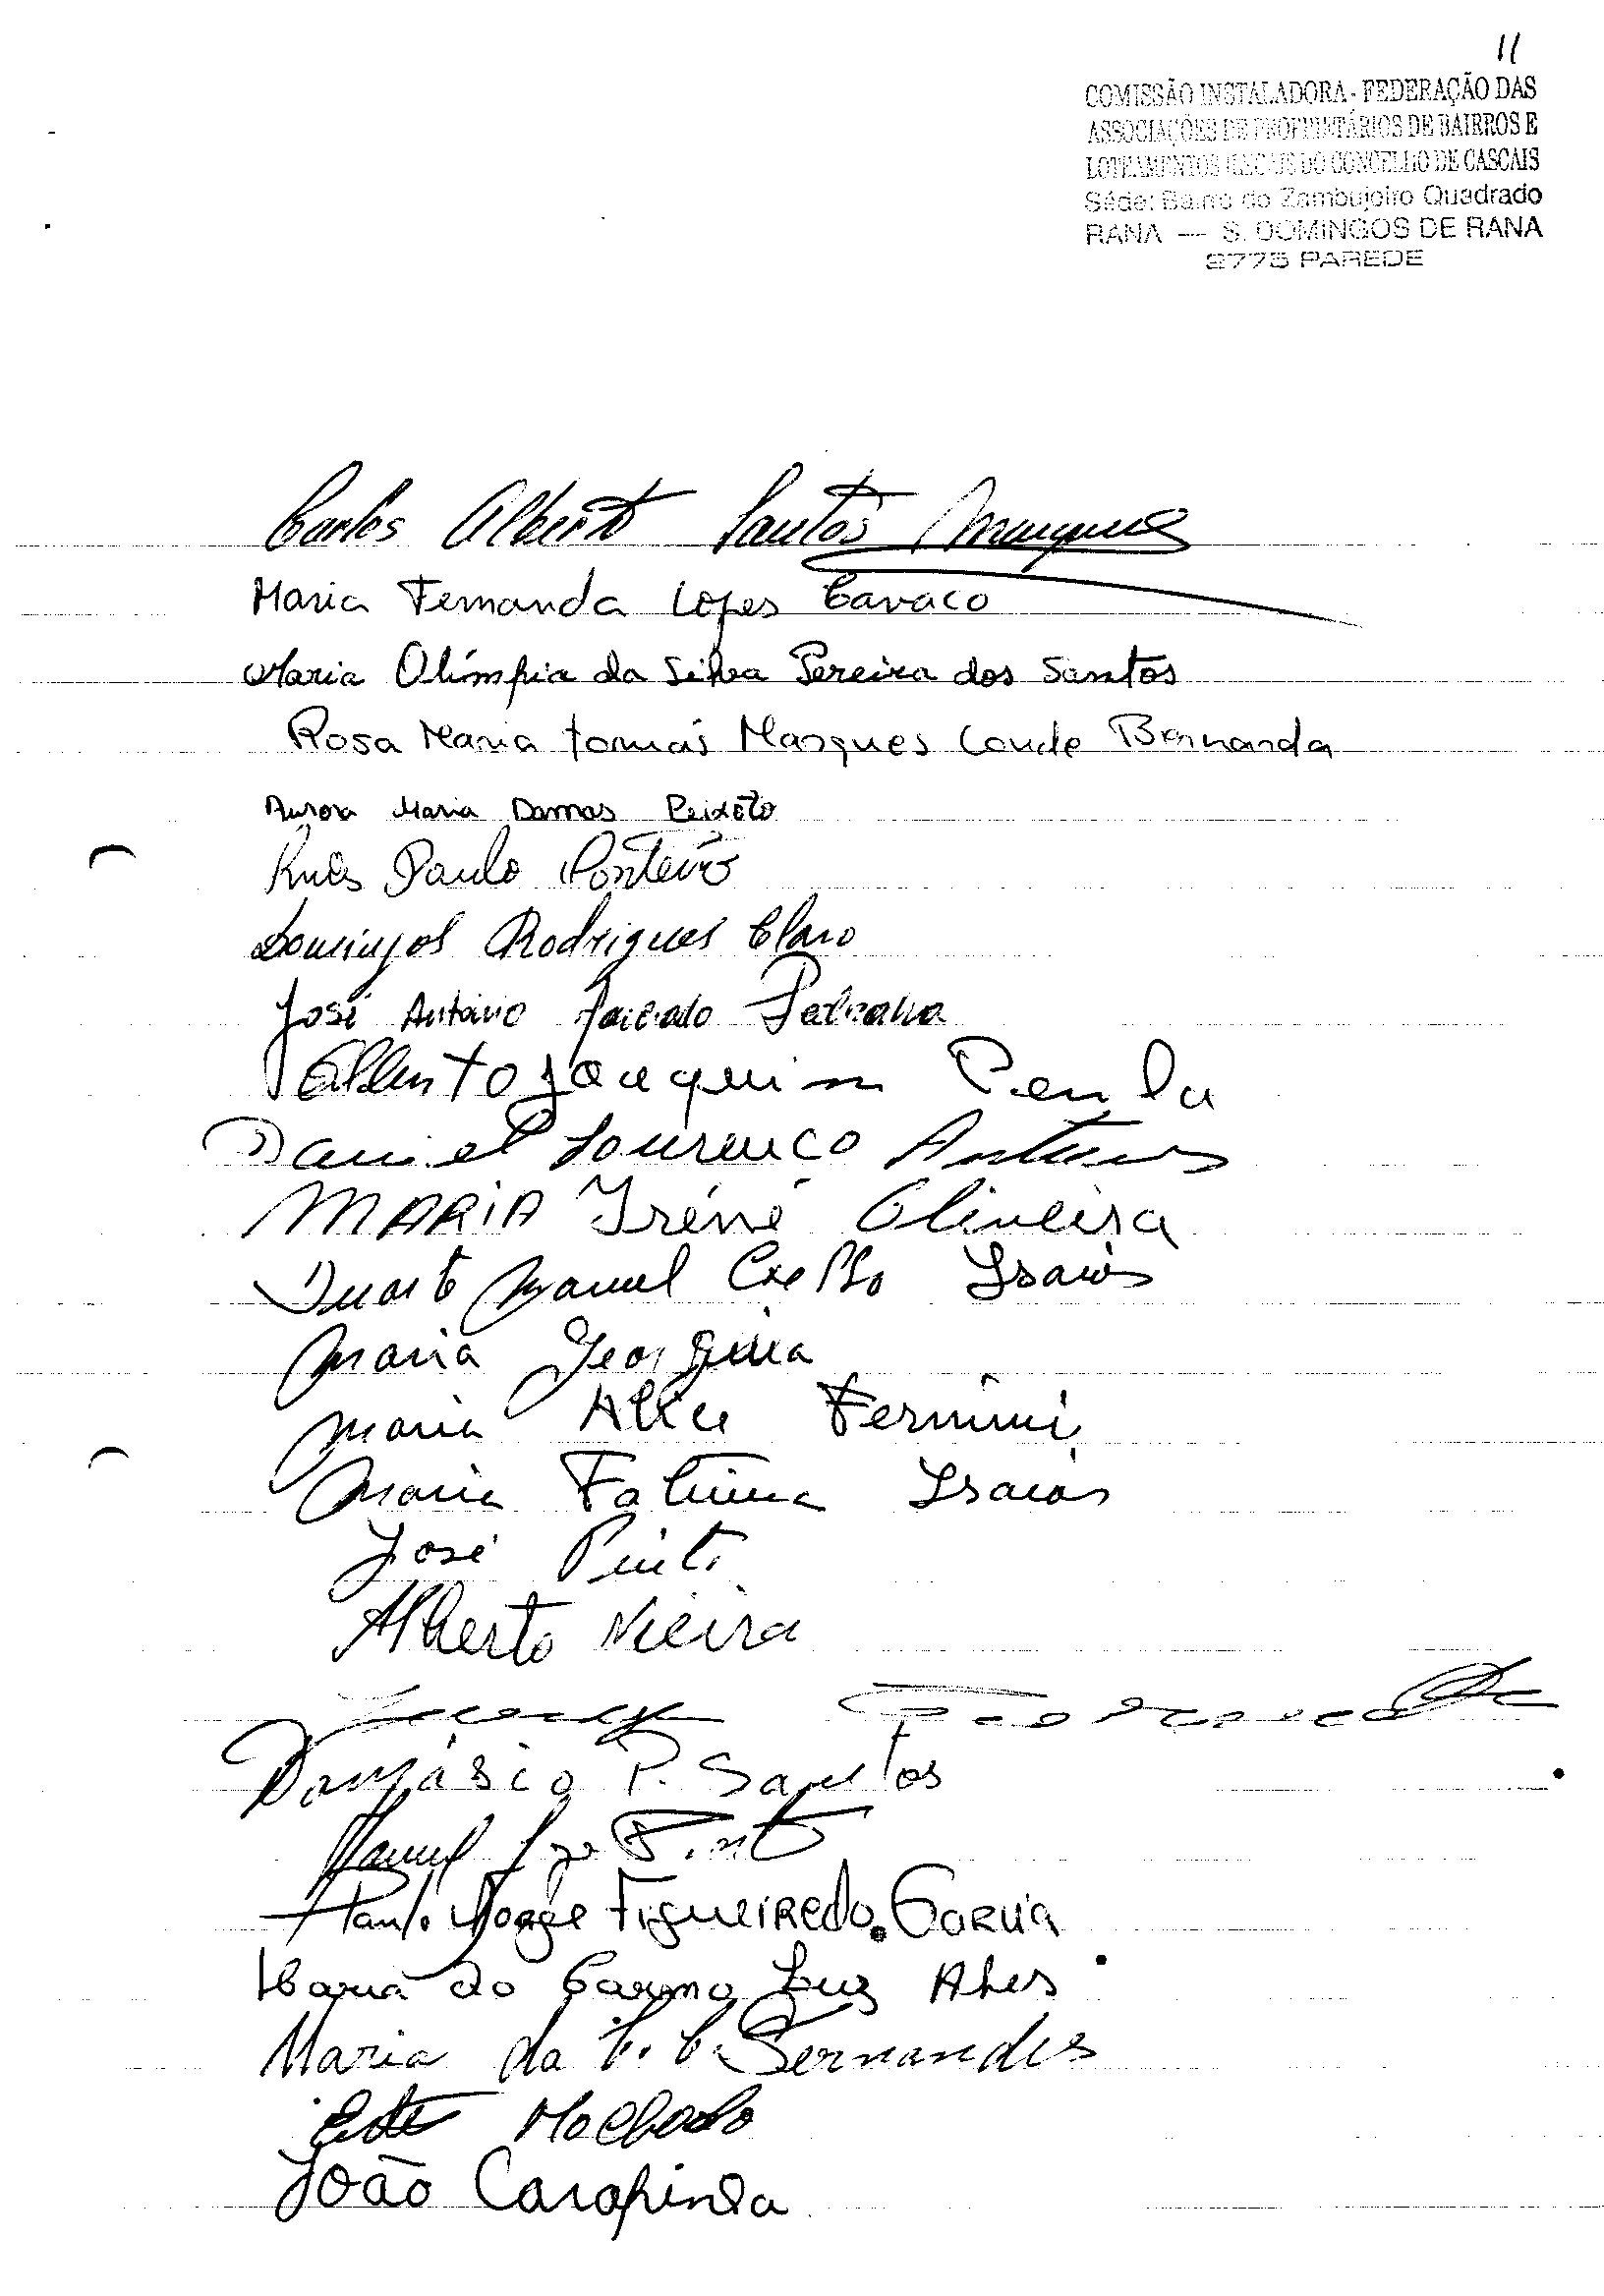 11
COMISSÃO INSTALADORA - FEDERAÇÃO DAS
ASSOCIAÇÕES DE PROPRIETÁRIOS DE BAIRROS E
LOTEAMENTOS ILEGAIS DO CONCELHO DE CASCAIS
Séde: Bairro do Zambujeiro Quadrado
RANA — S. DOMINGOS DE RANA
2775 PAREDE
Carlos Alberto Santos Marques
Maria Fernanda Lopes Cavaco
Maria Olímpia da Silva Pereira dos Santos
Rosa Maria Tomás Marques Conde Bernarda
Aurora Maria Damas Peixoto
Paulo Monteiro
Domingos Rodrigues Claro
José António
Alberto Joaquim
Daniel Lourenço Antunes
MARIA Iréne Oliveira
Duarte Manuel Coelho Isaias
Maria Georgina
Maria Alice
Maria Fatima Isaias
José Pinto
Alberto Vieira
Damásio P. Santos
Manuel Pinto
Paulo Jorge Figueiredo. Garcia
Maria do Carmo Luz Alves
Maria da C. C. Fernandes
Machado
João Carapinha